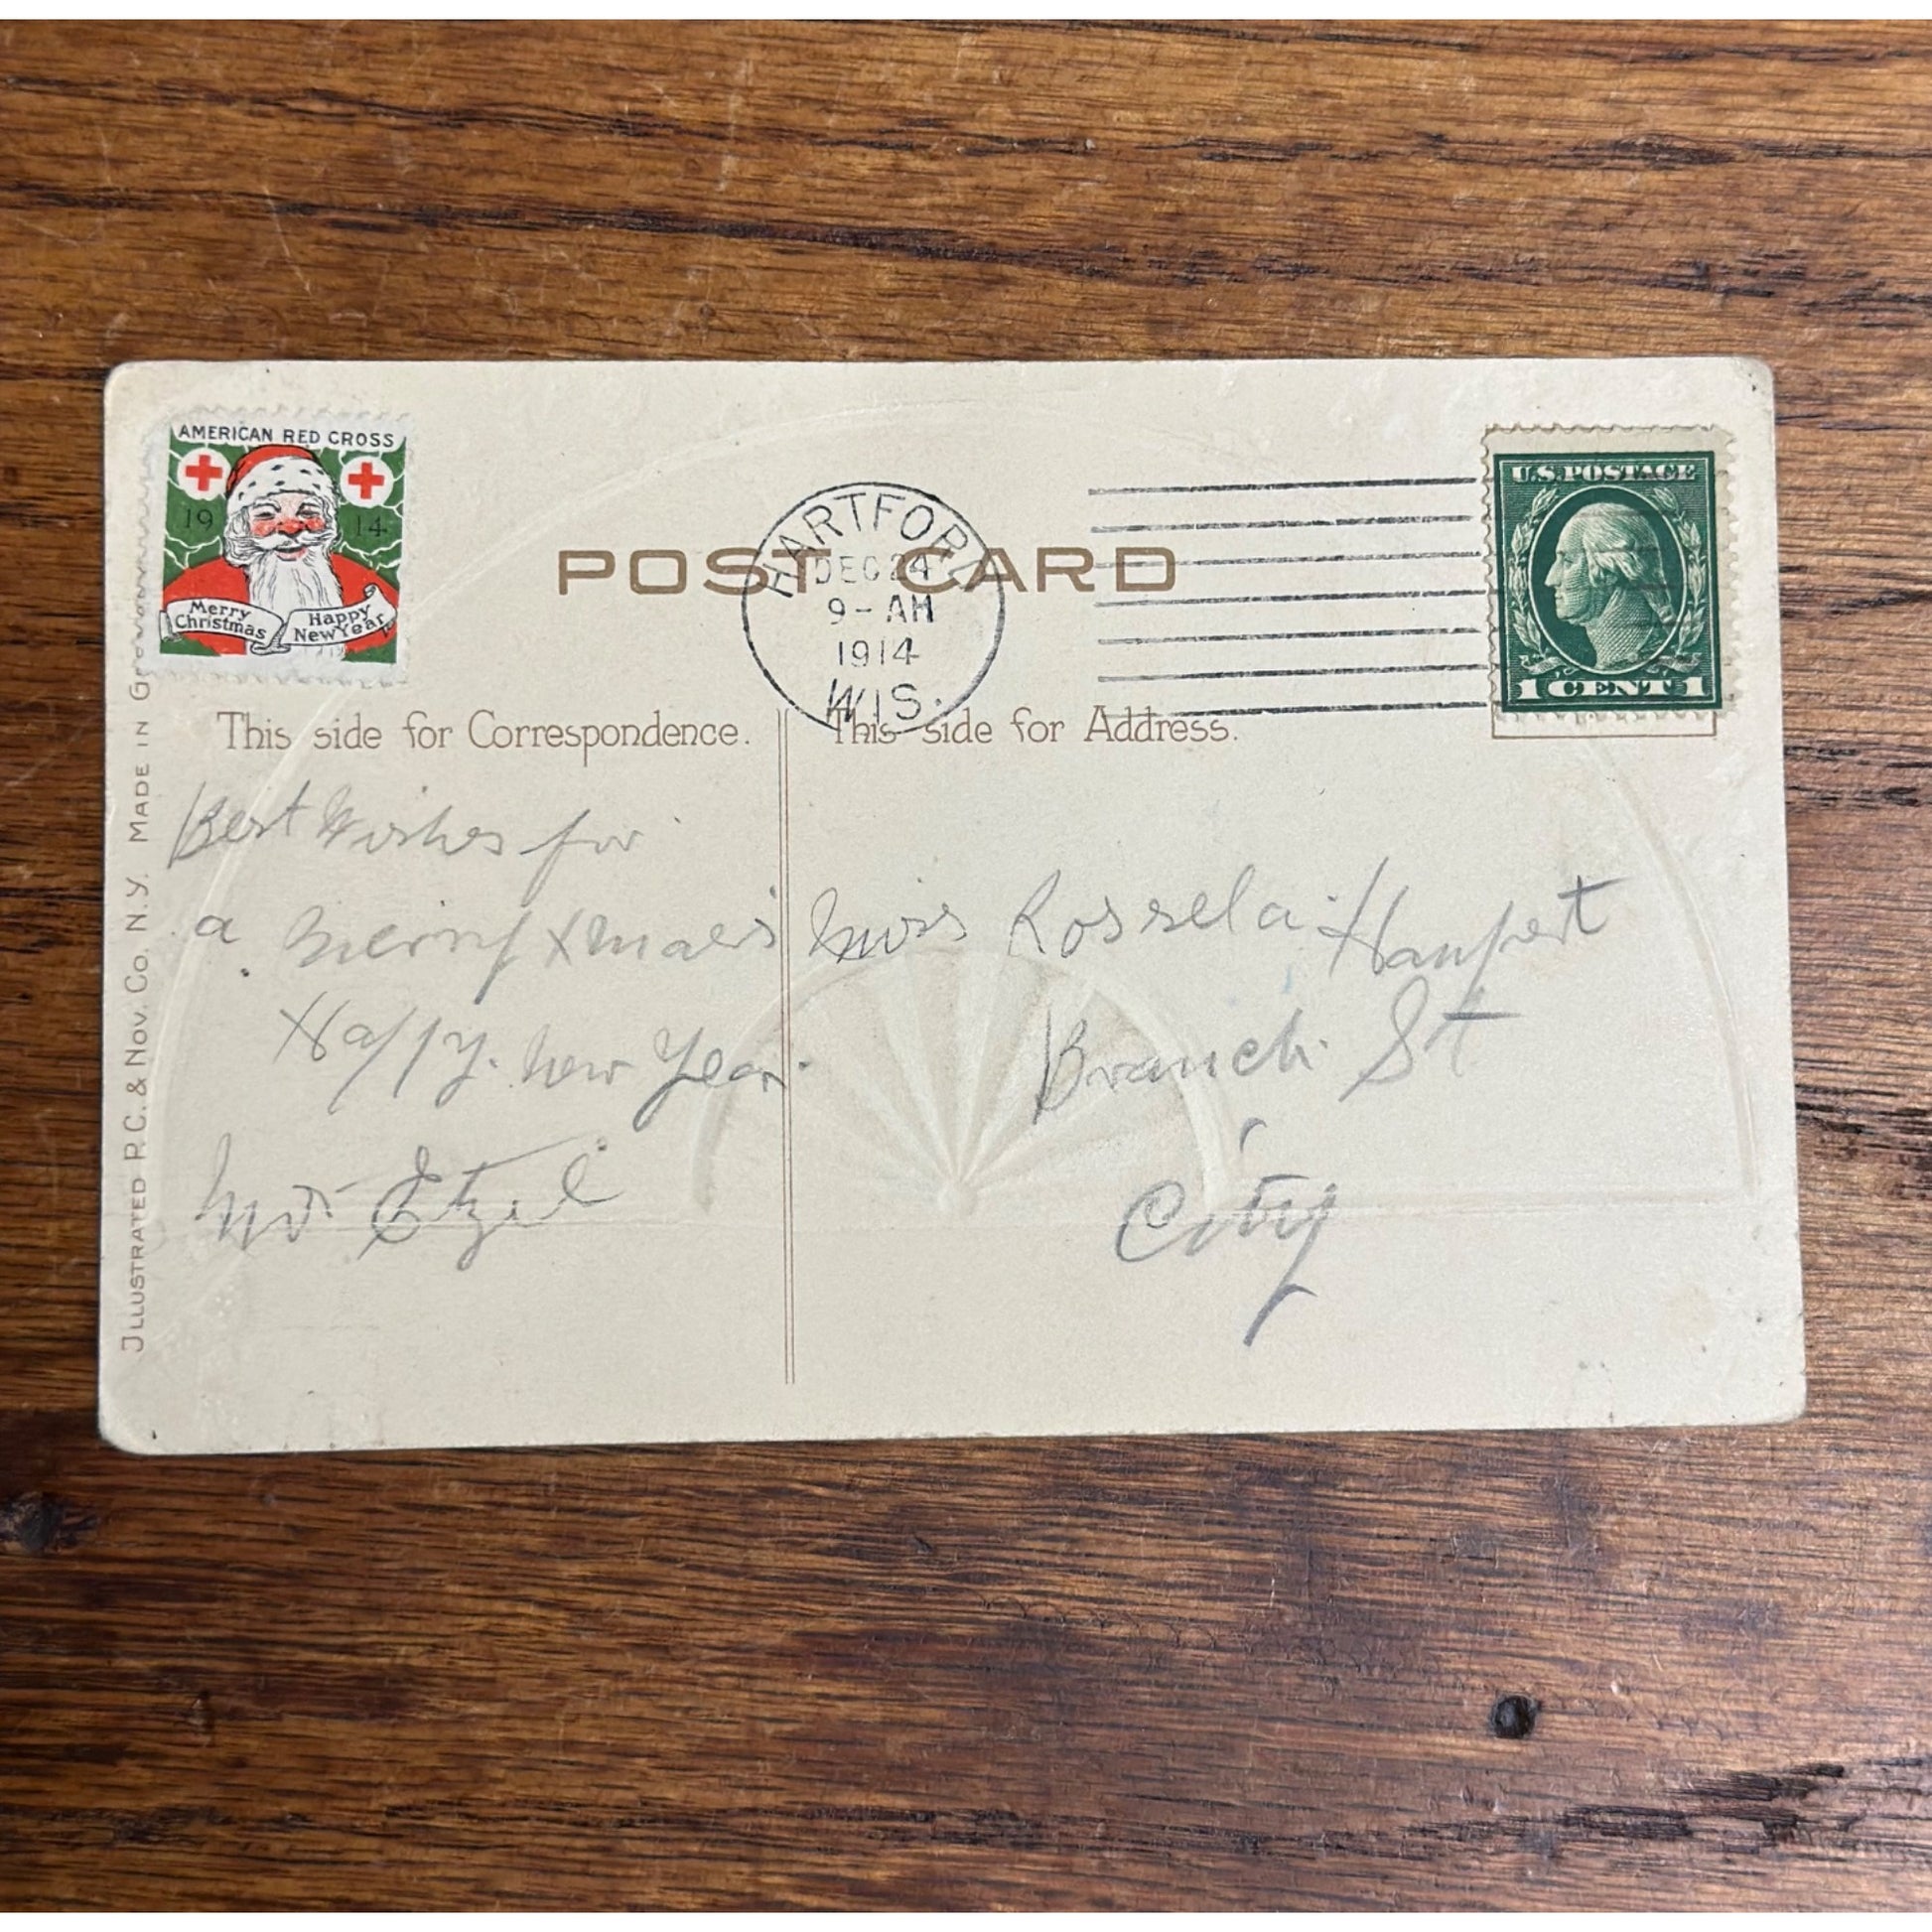 AMERICAN RED CROSS
19 14
Merry Christmas
Happy New Year
POST CARD
HARTFORD
DEC 24
9 - AM
1914
WIS.
U.S. POSTAGE
1 CENT 1
This side for Correspondence.
This side for Address.
Best Wishes for
a Merry Xmas
Happy. New Year.
Etzel
Miss Rossela Haupert
Branch St
City
ILLUSTRATED P.C. & NOV. CO. N.Y. MADE IN